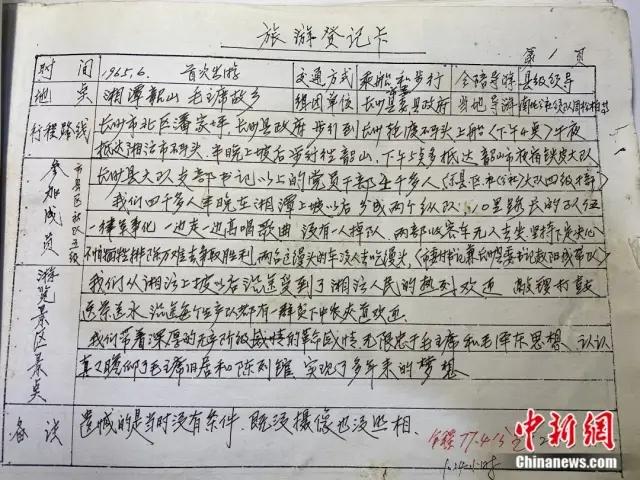 旅游登记卡
第1页
时间 1965.6. 首次出游 交通方式 乘船和步行 全陪导游 县级领导
地点 湘潭韶山 毛主席故乡 组团单位 长沙县委县政府 当地导游
行程路线 长沙市北区潘家坪 长沙县政府 步行到长沙 码头上船(下午4点)午夜
抵达湘江市码头.半晚上坡后步行经韶山.下午5点多抵达韶山市夜宿铁皮大队
参加成员 市县区社队五级
长沙县大队支部书记以上的党员干部四千多人
我们四千多人半晚在湘潭上坡以后分成两个纵队.10里路长的队伍
一律军事化 一边走一边高唱歌曲 没有一人掉队.两部收容车无人去坐 坚持下定决心
不怕牺牲排除万难去争取胜利 两台送馒头的车没人去吃馒头
游览景区景点
我们从湘江上坡以后沿途受到了湘江人民的热烈欢迎 敲锣打鼓
送茶送水 沿途每个生产队都有一群贫下中农夹道欢迎
我们带着深厚的无产阶级感情的革命感情 无限忠于毛主席和毛泽东思想 认认
真真瞻仰了毛主席旧居和陈列馆 实现了多年来的梦想
备注 遗憾的是当时没有条件.既没摄像也没照相.
中新网
Chinanews.com